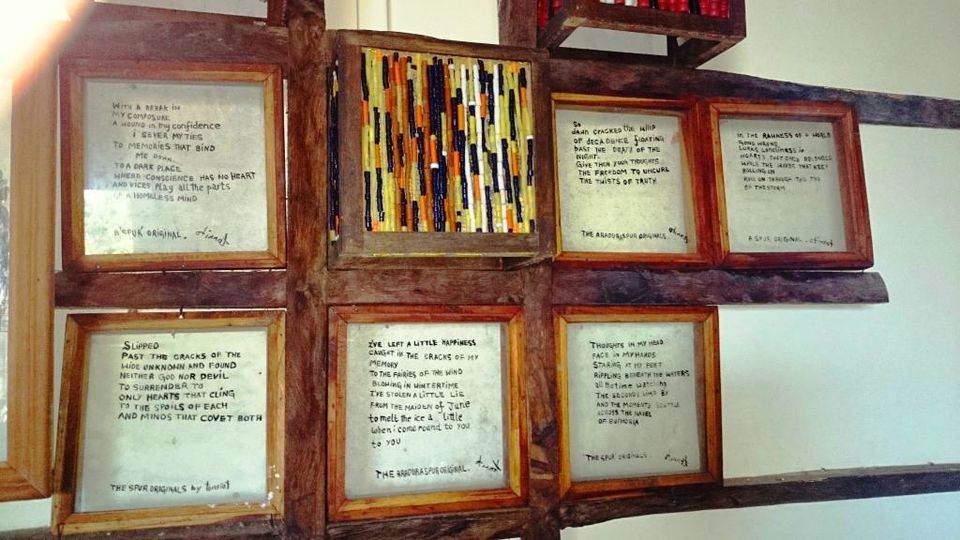 WITH A BREAK IN
MY COMPOSURE
A WOUND IN my confidence
I SEVER MY TIES
TO MEMORIES THAT BIND
ME DOWN
TO A DARK PLACE
WHERE CONSCIENCE HAS NO HEART
AND VICES PLAY all the parts
OF A HOMELESS MIND
A SPUR ORIGINAL.
SO
DAWN CRACKED the WHIP
OF DECADENCE FLOATING
PAST THE OF THE
NIGHT.
GIVE THEN YOUR THOUGHTS
THE FREEDOM TO UNCURL
THE TWISTS OF TRUTH
THE SPUR ORIGINALS
IN THE RAWNESS OF A WORLD
GONE WRONG
LURKS LONELINESS in
HEARTS THAT ONCE
WHILE THE THAT WERE
ROLLING ON
ROLL ON THROUGH THE EYE
OF THE STORM
A SPUR ORIGINAL
SLIPPED
PAST THE CRACKS OF THE
WIDE UNKNOWN AND FOUND
NEITHER GOD NOR DEVIL
TO SURRENDER TO
ONLY HEARTS THAT CLING
TO THE SPOILS OF EACH
AND MINDS THAT COVET BOTH
THE SPUR ORIGINALS by
I'VE LEFT A LITTLE HAPPINESS
CAUGHT IN THE CRACKS OF MY
MEMORY
TO THE FAIRIES OF THE WIND
BLOWING IN WINTERTIME
I'VE STOLEN A LITTLE LIE
FROM THE MAIDEN OF JUNE
to melt the ice a little
when i come round to you
to YOU
THE SPUR ORIGINAL.
THOUGHTS IN MY HEAD
FACE IN MY HANDS
STARING AT MY FEET
RIPPLING BENEATH THE WATERS
all the time watching
THE SECONDS LIMP BY
AND THE MOMENTS
ACROSS THE NAVEL
OF EUPHORIA
THE SPUR ORIGINALS